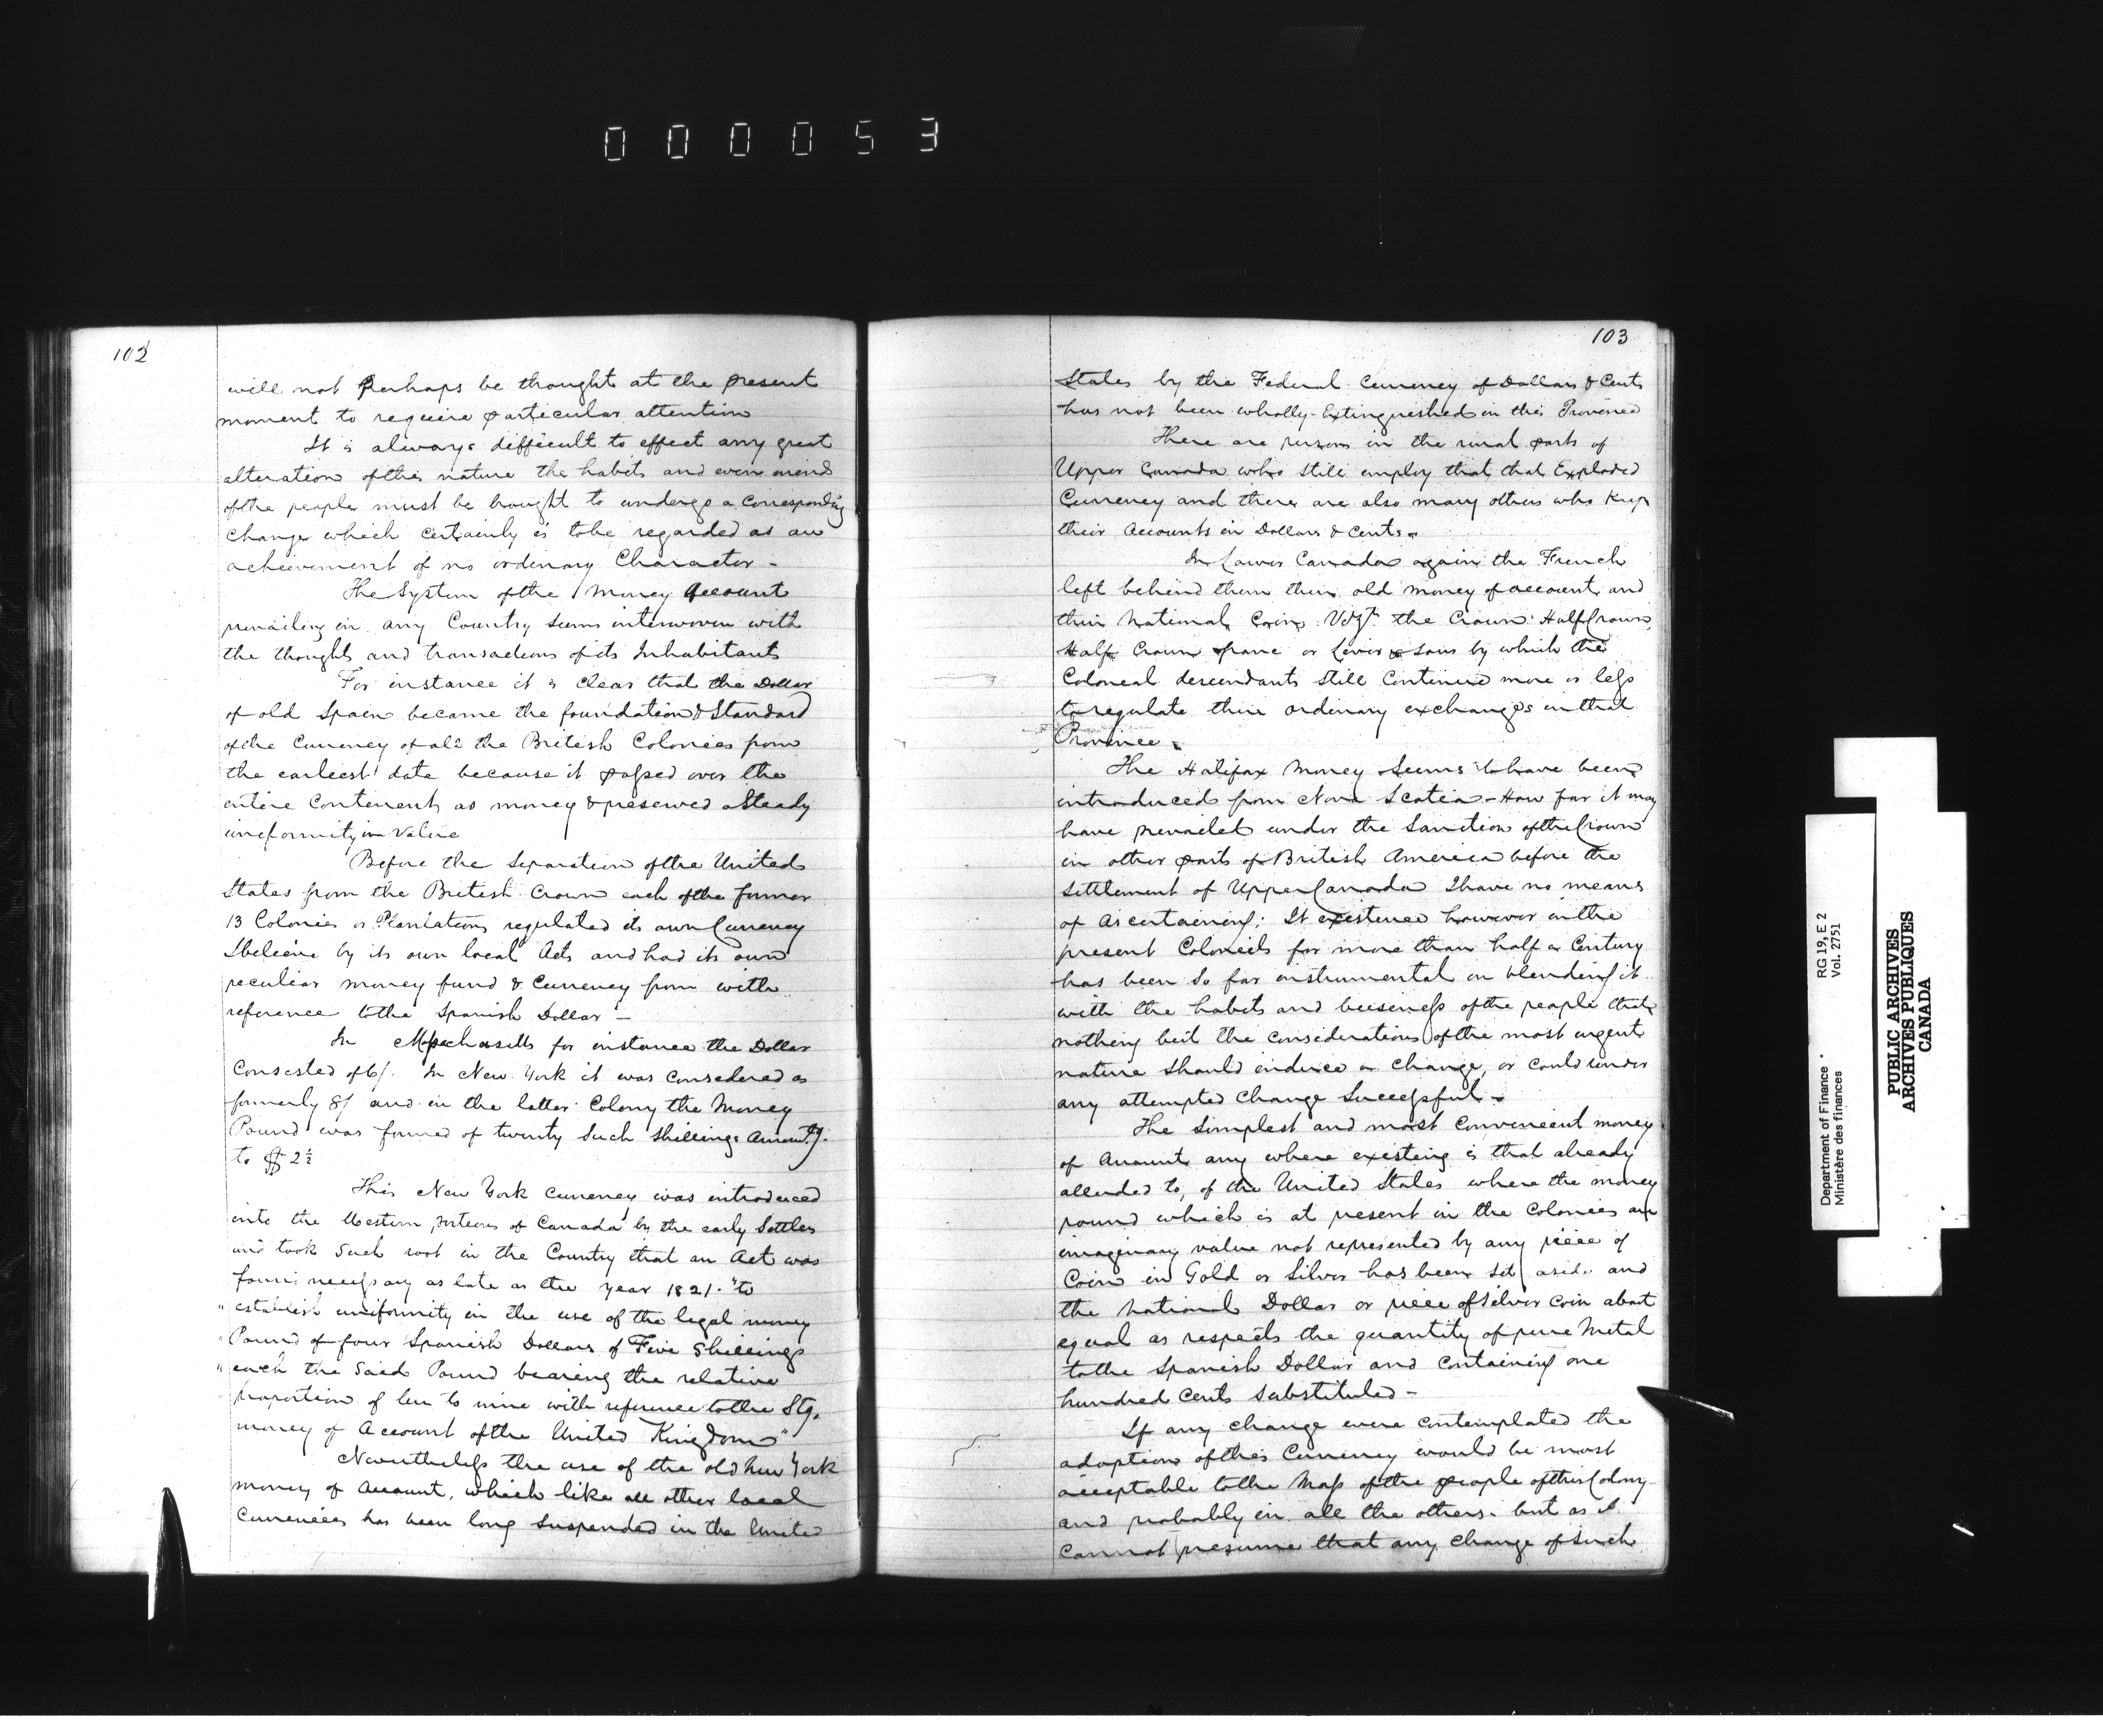 000053
102
will not perhaps be thought at the present
moment to require particular attention
It is always difficult to effect any great
alteration of this nature the habits and even mind
of the people must be brought to undergo a corresponding
change which certainly is to be regarded as an
achievement of no ordinary Character -
The System of the Money Account
prevailing in any Country seems interwoven with
the thoughts and transactions of its Inhabitants
For instance it is clear that the Dollar
of old Spain became the foundation & Standard
of the Currency of all the British Colonies from
the earliest date because it passed over the
entire Continent as money & preserved a Steady
uniformity in Value
Before the Separation of the United
States from the British Crown each of the former
13 Colonies or Plantations regulated its own Currency
I believe by its own local Acts and had its own
peculiar money fund & Currency from with
reference to the Spanish Dollar -
In for instance the Dollar
Consisted of 6/. In New York it was Considered as
formerly 8/ and in the latter Colony the Money
Pound was formed of twenty Such Shillings Amountg.
to $2½
This New York Currency was introduced
into the Western portions of Canada by the early Settlers
and took Such root in the Country that an Act was
found necessary as late as the year 1821. "to
" establish uniformity in the use of the legal money
" Pound of four Spanish Dollars of Five Shillings
" each the Said Pound bearing the relative
proportion of ten to nine with reference to the Stg.
money of Account of the United Kingdom"
Nevertheless the use of the old New York
money of Account, which like all other local
Currencies has been long Suspended in the United
103
States by the Federal Currency of Dollars & Cents
has not been wholly Extinguished in this Province
There are persons in the rural parts of
Upper Canada who still employ that that Exploded
Currency and there are also many others who Keep
their Accounts in Dollars & Cents -
In Lower Canada again the French
left behind them their old money of account and
their National Coin Vizt the Crown Half Crown
Half Crown franc or Livre & Sous by which the
Colonial descendants still Continue more or less
to regulate their ordinary exchanges in that
Province -
The Halifax Money Seems to have been
introduced from Nova Scotia - How far it may
have prevailed under the Sanction of the Crown
in other parts of British America before the
Settlement of Upper Canada I have no means
of ascertaining; It existence however in the
present Colonies for more than half a Century
has been So far instrumental in blending it
with the habits and business of the people that
nothing but the Considerations of the most urgent
nature Should induce a Change, or Could render
any attempted Change Successful -
The Simplest and most Convenient money
of Account any where existing is that already
alluded to, of the United States where the money
pound which is at present in the Colonies an
imaginary value not represented by any piece of
Coin in Gold or Silver has been Set aside and
the National Dollar or piece of Silver Coin about
equal as respects the quantity of pure Metal
to the Spanish Dollar and Containing one
hundred Cents Substituted -
If any Change were Contemplated the
adoption of this Currency would be most
acceptable to the Mass of the people of this Colony
and probably in all the others. but as I
Cannot presume that any Change of Such
Department of Finance
Ministère des finances
RG 19, E 2
Vol. 2751
PUBLIC ARCHIVES
ARCHIVES PUBLIQUES
CANADA